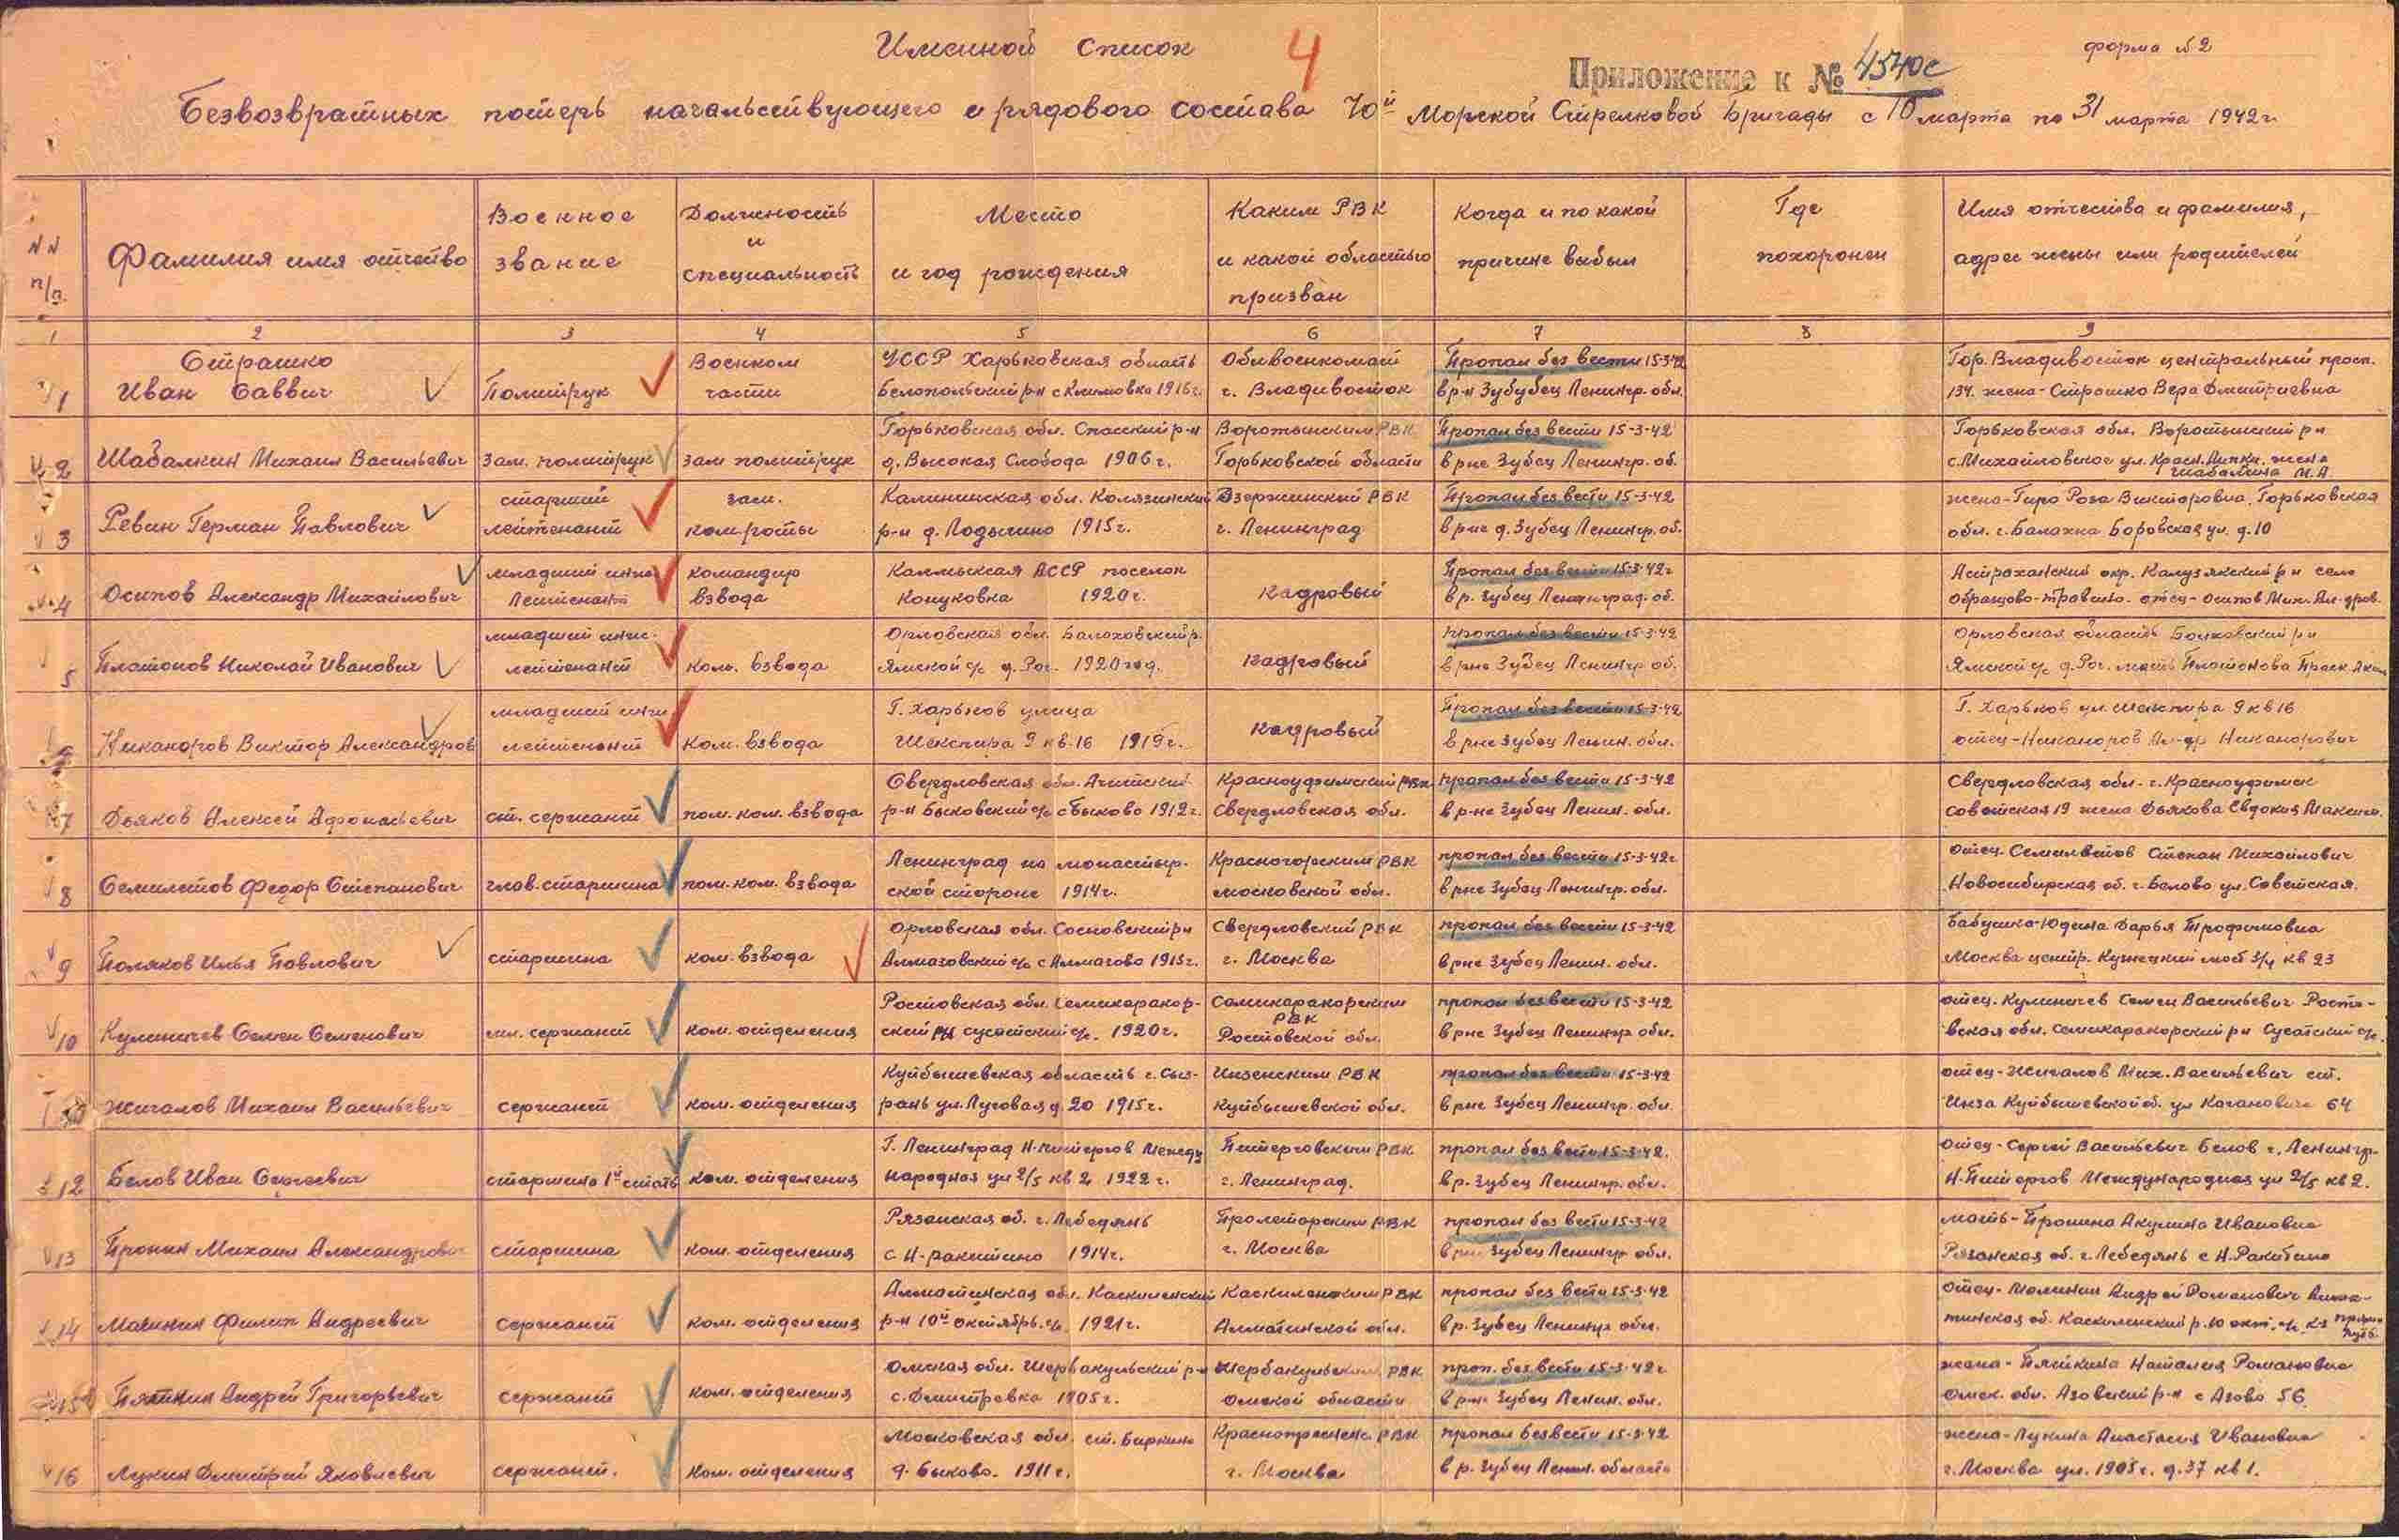 Именной список
4
Приложение к № 4540с
форма №2
Безвозвратных потерь начальствующего и рядового состава 70й Морской Стрелковой Бригады с 10 марта по 31 марта 1942г.
NN п/п.
Фамилия имя отчество
Военное звание
Должность и специальность
Место и год рождения
Каким РВК и какой областью призван
Когда и по какой причине выбыл
Где похоронен
Имя отчества и фамилия, адрес жены или родителей
1 2 3 4 5 6 7 8 9
Страшко Военком УССР Харьковская область Облвоенкомат Пропал без вести 15-3-42 Гор. Владивосток центральный просп.
1 Иван Саввич Политрук части Белопольский р-н с Климовка 1916г. г. Владивосток в р-н Зубубец Ленингр. обл. 134. жена-Страшко Вера Дмитриевна
Горьковская обл. Спасский р-н Воротынским РВК Пропал без вести 15-3-42 Горьковская обл. Воротынский р-н
2 Шабалкин Михаил Васильевич Зам. политрук зам политрук д. Высокая Слобода 1906г. Горьковской области в р-не Зубец Ленингр. об. с. Михайловское ул. Красн. жена
Шабалкина М.А
старший зам. Калининская обл. Колязинский Дзержинский РВК Пропал без вести 15-3-42 жена-Гиро Роза Викторовна. Горьковская
3 Ревин Герман Павлович лейтенант ком.роты р-н д. Лодыгино 1915г. г. Ленинград в р-не д. Зубец Ленингр. об. обл. г. Балахна Боровская ул. д.10
младший командир Калмыксая АССР поселок Пропал без вести 15-3-42г Астраханский окр. р-н село
4 Осипов Александр Михайлович Лейтенант взвода Конуковка 1920г. кадровый в р. Зубец Ленинград. об. образцово-травино. отец-Осипов Мих.
младший Орловская обл. пропал без вести 15-3-42 Орловская область р-н
5 Платонов Николай Иванович лейтенант ком. взвода Ямской с/с д. Рог. 1920 год. кадровый в р-не Зубец Ленингр об. Ямской с/с д. Рог. мать Платонова
младший Г. Харьков улица Пропал без вести 15-3-42 Г. Харьков ул. Шекспира 9 кв 16
Никаноров Виктор Александров лейтенант ком. взвода Шекспира 9 кв-16 1919г. кадровый в р-не Зубец Ленин. обл. отец-Никаноров Ал-др Никанорович
Свердловская обл. Ачитский Красноуфимский РВК пропал без вести 15-3-42 Свердловская обл. г. Красноуфимск
7 Дьяков Алексей Афонасьевич ст. сержант пом. ком. взвода р-н Быковский с/с с Быково 1912г. Свердловская обл. в р-не Зубец Ленин. обл. советская 19 жена Дьякова Евдокия Максим.
Ленинград на монастыр- Красногорским РВК пропал без вести 15-3-42г отец-Семилетов Степан Михайлович
8 Семилетов Федор Степанович глов. старшина пом. ком. взвода ской стороне 1914г. московской обл. в р-не Зубец Ленингр. обл. Новосибирская об. г. Белово ул. Советская.
Орловская обл. Сосновский р-н Свердловский РВК пропал без вести 15-3-42 Бабушка-Юдина Дарья Трофимовна
9 Поляков Илья Павлович старшина ком. взвода с/с с Алмазово 1915г. г. Москва в р-не Зубец Ленин. обл. Москва центр. Кузнецкий мост 3/4 кв 23
Ростовская обл. Семикаракор- Семикаракорским пропал без вести 15-3-42 отец. Кулиничев Семен Васильевич Росто-
РВК
10 Кулиничев Семен Семенович мл. сержант ком. отделения ский рн сусатский с/с. 1920г. Ростовской обл. в р-не Зубец Ленингр обл. вская обл. семикаракорский р-н Сусатский с/с.
Куйбышевская область г. Сыз- Инзенским РВК пропал без вести 15-3-42 отец-Жигалов Мих. Васильевич ст.
Жигалов Михаил Васильевич сержант ком. отделения рань ул. Луговая д. 20 1915г. Куйбышевской обл. в р-не Зубец Ленингр. обл. Инза Куйбышевской об. ул Кагановича 64
Г. Ленинград Н-питергов Между Питерговским РВК пропал без вести 15-3-42. отец-Сергей Васильевич Белов г. Ленингр-
12 Белов Иван Сергеевич старшина 1й стать ком. отделения народная ул 2/5 кв 2 1922г. г. Ленинград. в р. Зубец Ленингр. обл. Н-Питергов Международная ул 2/5 кв 2.
Рязанская об. г. Лебедянь Пролетарским РВК пропал без вести 15-3-42 мать-Пронина Акулина Ивановна
13 Пронин Михаил Александрович старшина ком. отделения с Н-ракитино 1914г. г. Москва в р-не Зубец Ленингр обл. Рязанская об. г. Лебедянь с Н. Ракитино
Алматинская обл. Каскиленский Каскиленским РВК пропал без вести 15-3-42 отец-Малинин Андрей Романович Алма-
14 Малинин Филип Андреевич сержант ком. отделения р-н 10й октябрь. с/с. 1921г. Алматинской обл. в р. Зубец Ленингр обл. тинская об. Каскиленский р. 10 окт. с/с. к-з
Омская обл. Шербакульский р-н Шербакульским РВК проп. без вести 15-3-42г жена-Пяткина Наталия Романовна
15 Пяткин Андрей Григорьевич сержант ком. отделения с. Дмитревка 1905г. омской области в р-не Зубец Ленин. обл. омск. обл. Азовский р-н с Азово 56
Московская обл. ст. Бирюли Краснопресненс РВК пропал без вести 15-3-42 жена-Лукина Анастасия Ивановна
16 Лукин Дмитрий Яковлевич сержант. ком. отделения д. Быково. 1911г. г. Москва в р. Зубец Ленин. область г. Москва ул. 1905г. д. 37 кв 1.